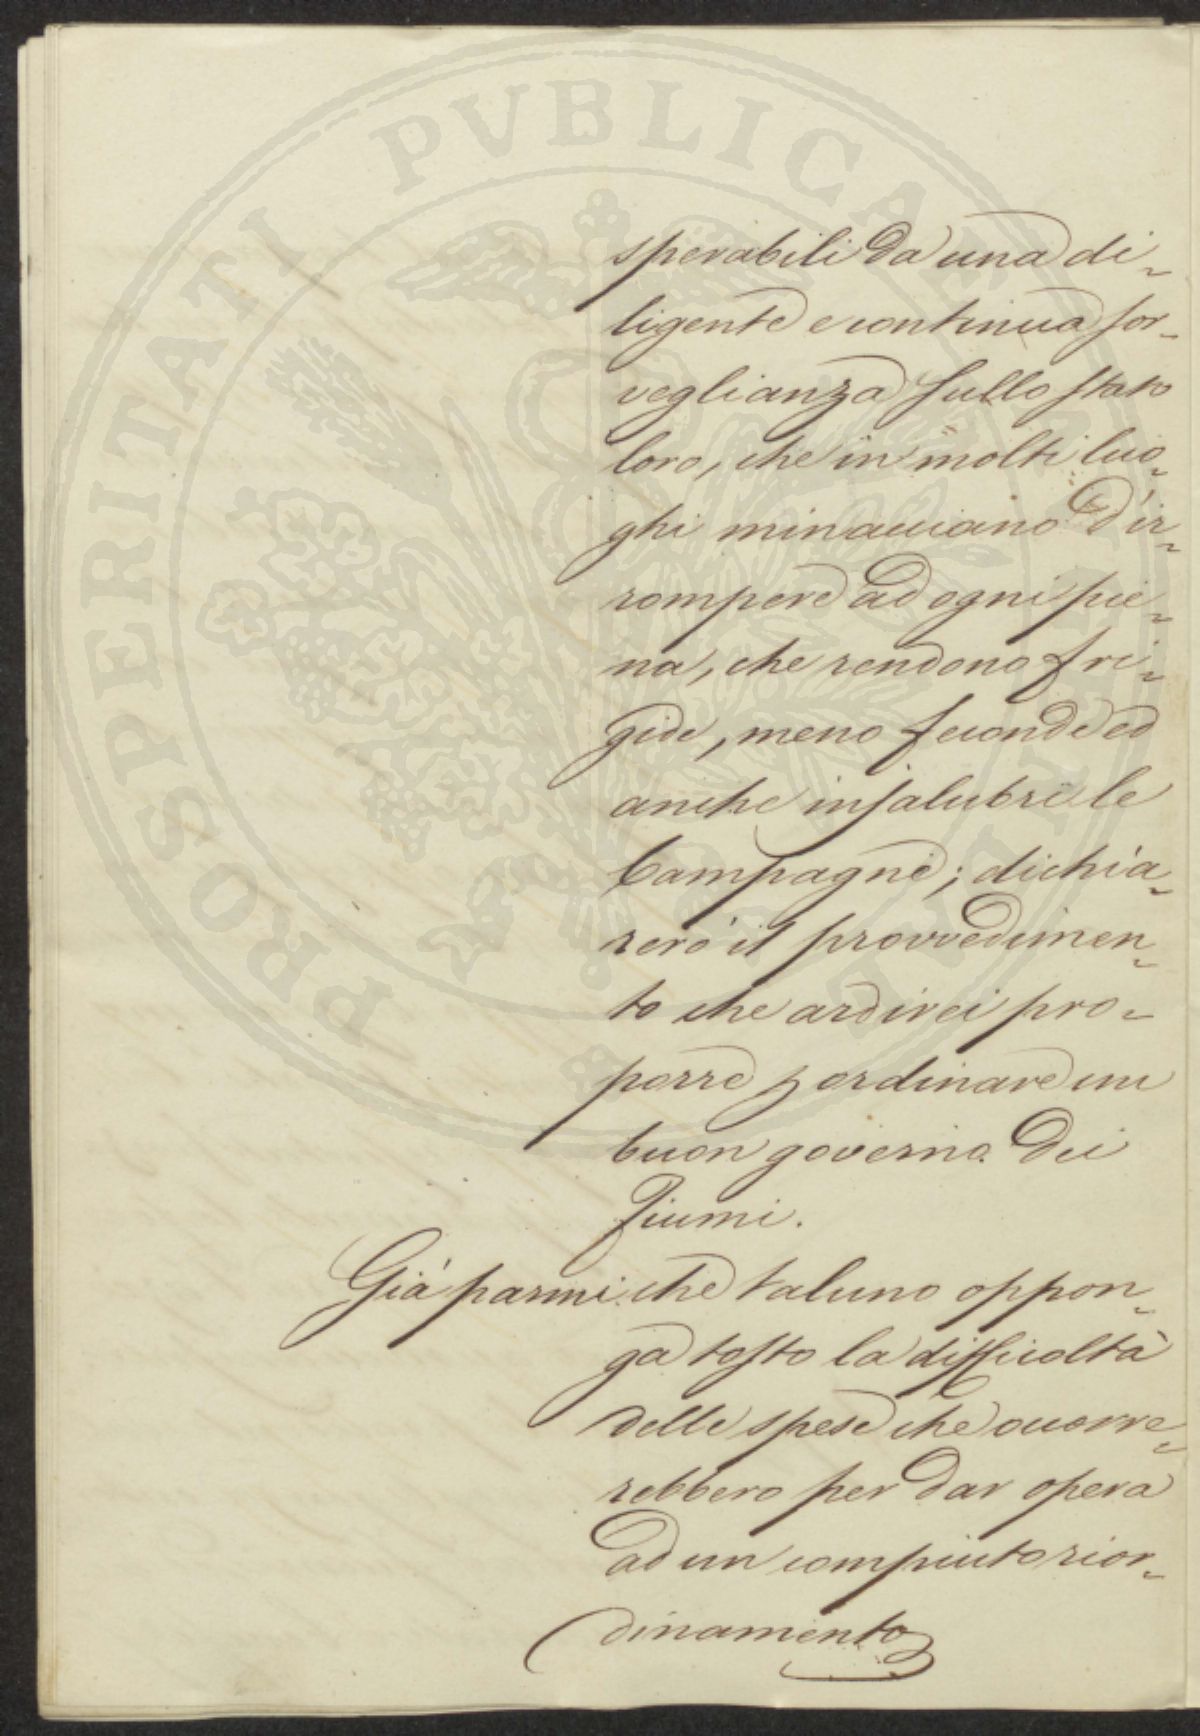 PROSPERITATI PVBLICAE AVGENDAE
sperabili da una di=
ligente e continua sor=
veglianza sullo stato
loro, che in molti luo=
ghi minacciano d'ir=
rompere ad ogni pie=
na, che rendono fri=
gide, meno feconde ed
anche insalubri le
Campagne; dichia=
rerò il provvedimen=
to che ardirei pro=
porre p ordinare un
buon governo dei
fiumi.
Già parmi che taluno oppon=
ga tosto la difficoltà
delle spese che occorre=
rebbero per dar opera
ad un compiuto rior=
dinamento